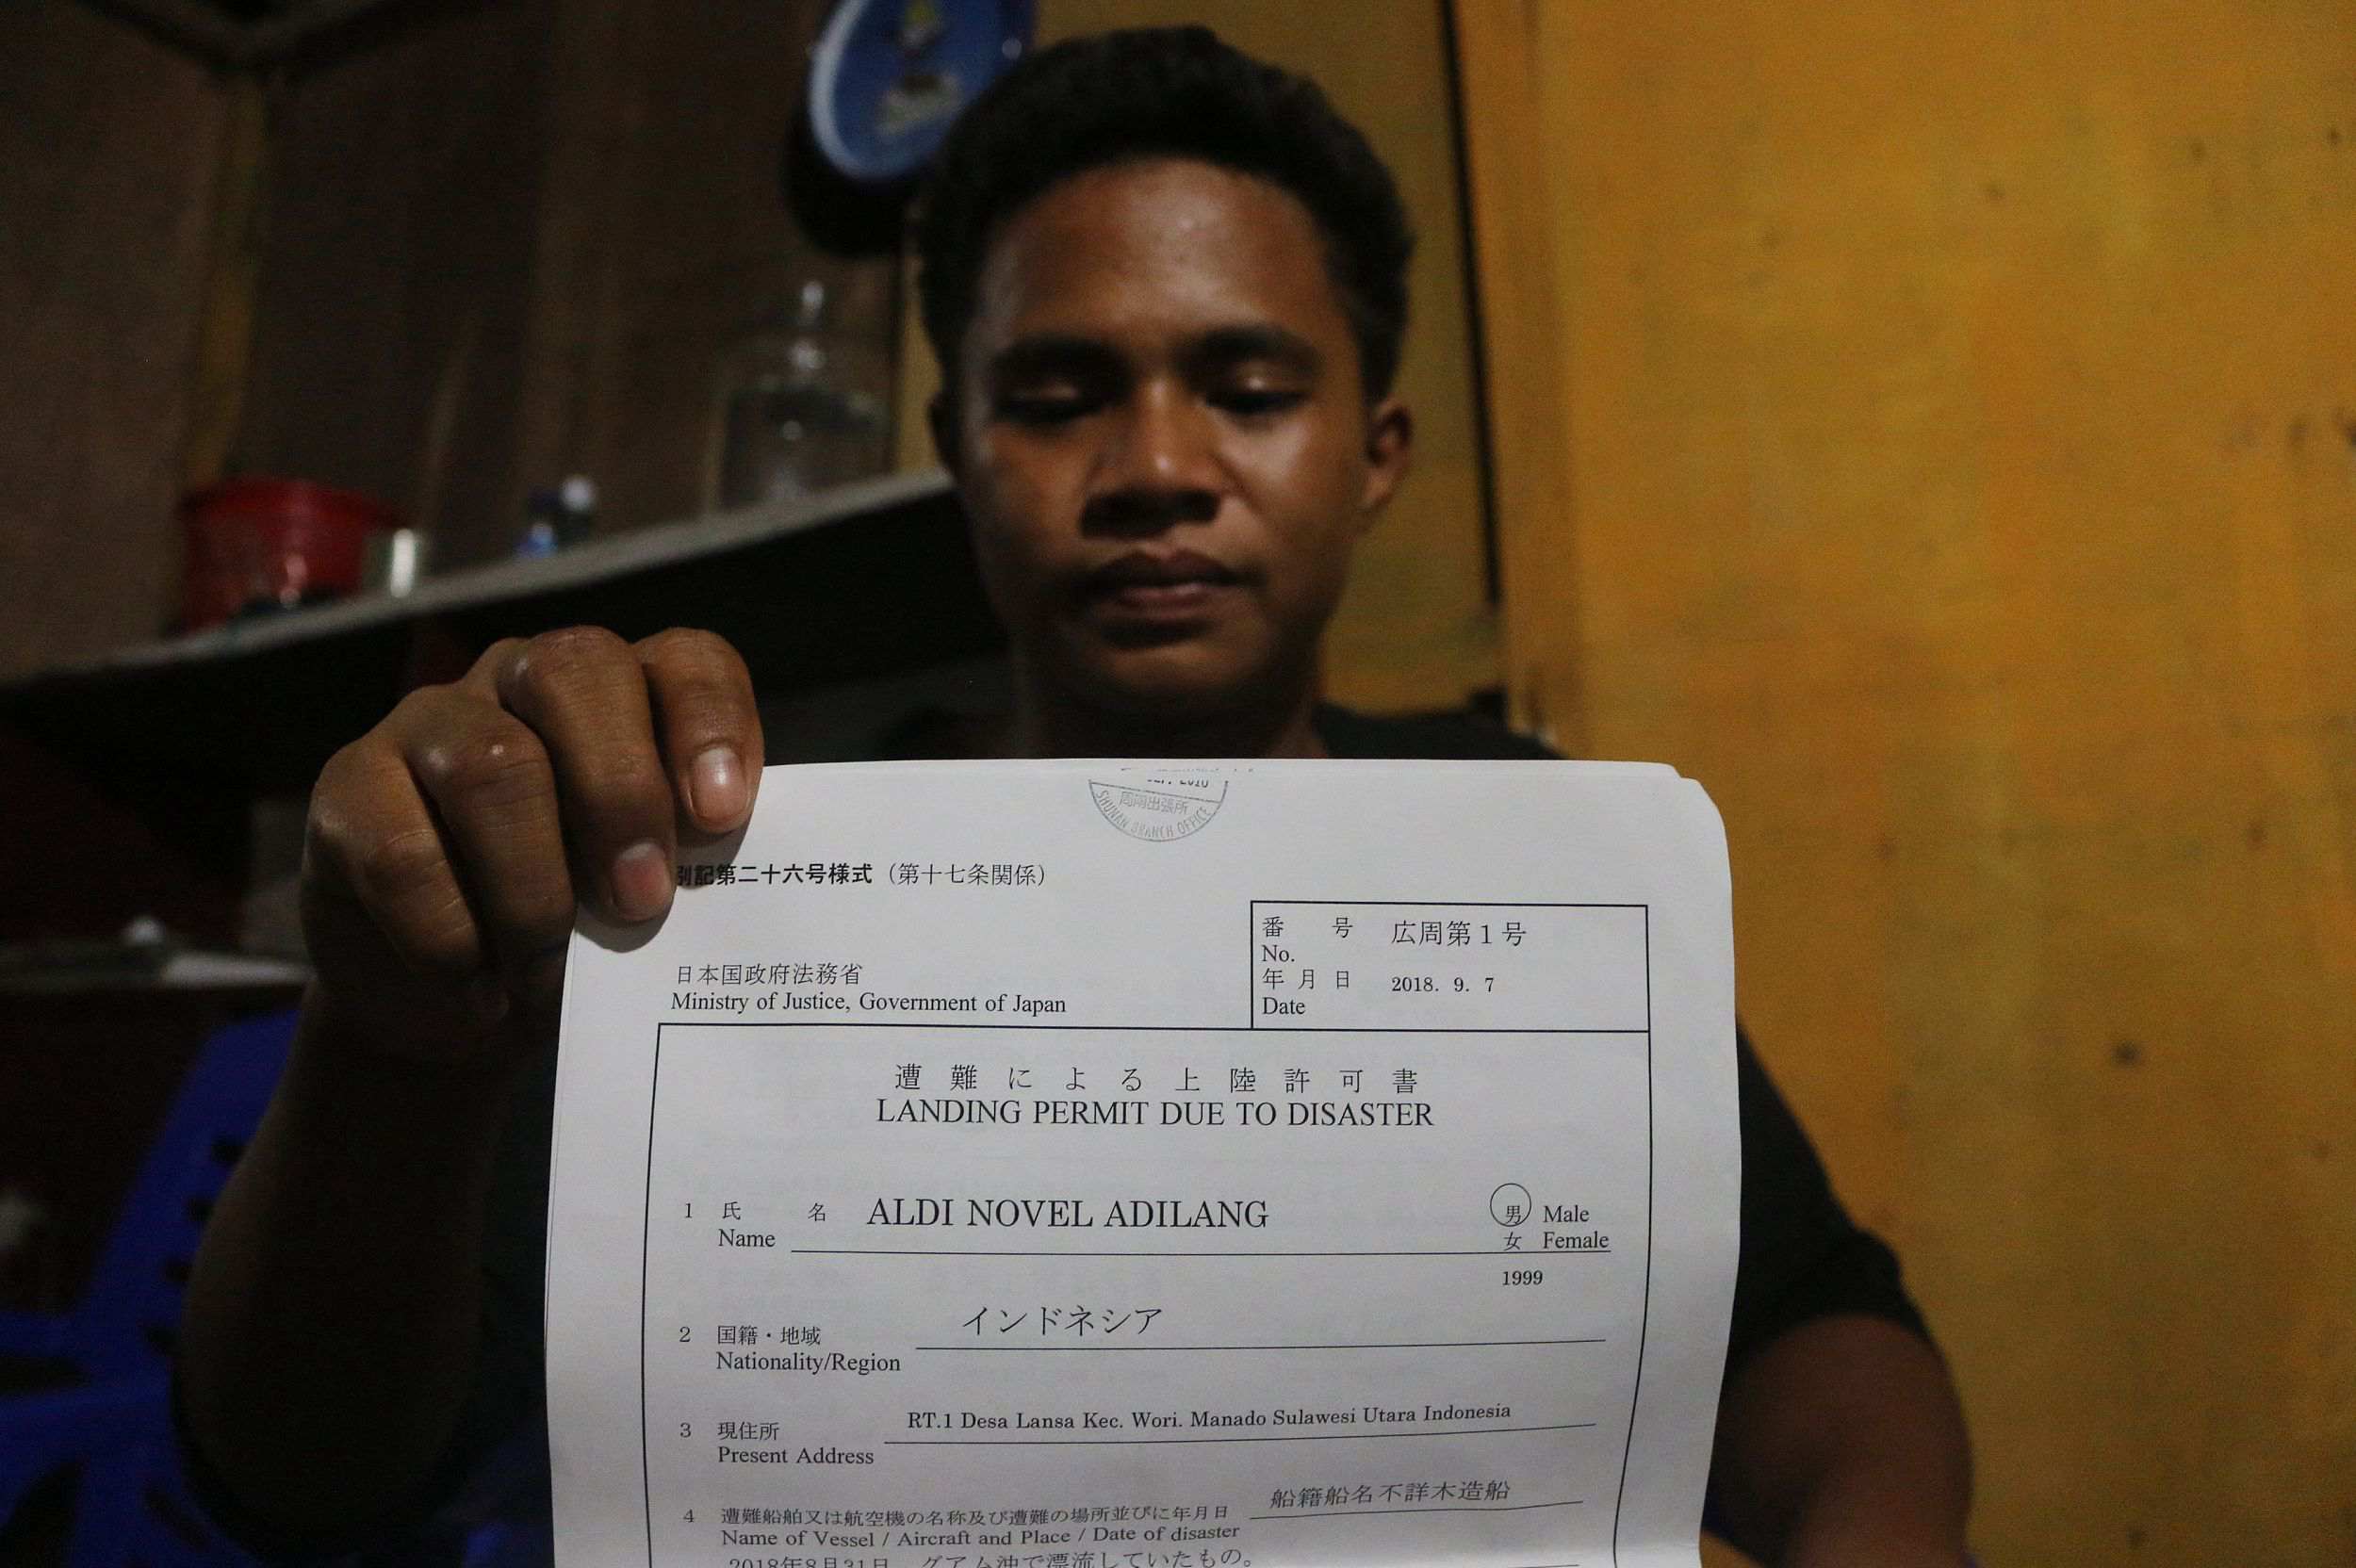 SHUNAN BRANCH OFFICE
記第二十六号様式（第十七条関係）
番 号 広周第１号
No.
年 月 日 2018. 9. 7
Date
日本国政府法務省
Ministry of Justice, Government of Japan
遭難による上陸許可書
LANDING PERMIT DUE TO DISASTER
1 氏 名 ALDI NOVEL ADILANG 男 Male
Name 女 Female
1999
2 国籍・地域 インドネシア
Nationality/Region
3 現住所 RT.1 Desa Lansa Kec. Wori. Manado Sulawesi Utara Indonesia
Present Address
4 遭難船舶又は航空機の名称及び遭難の場所並びに年月日 船籍船名不詳木造船
Name of Vessel / Aircraft and Place / Date of disaster
2018年8月31日 グアム沖で漂流していたもの。